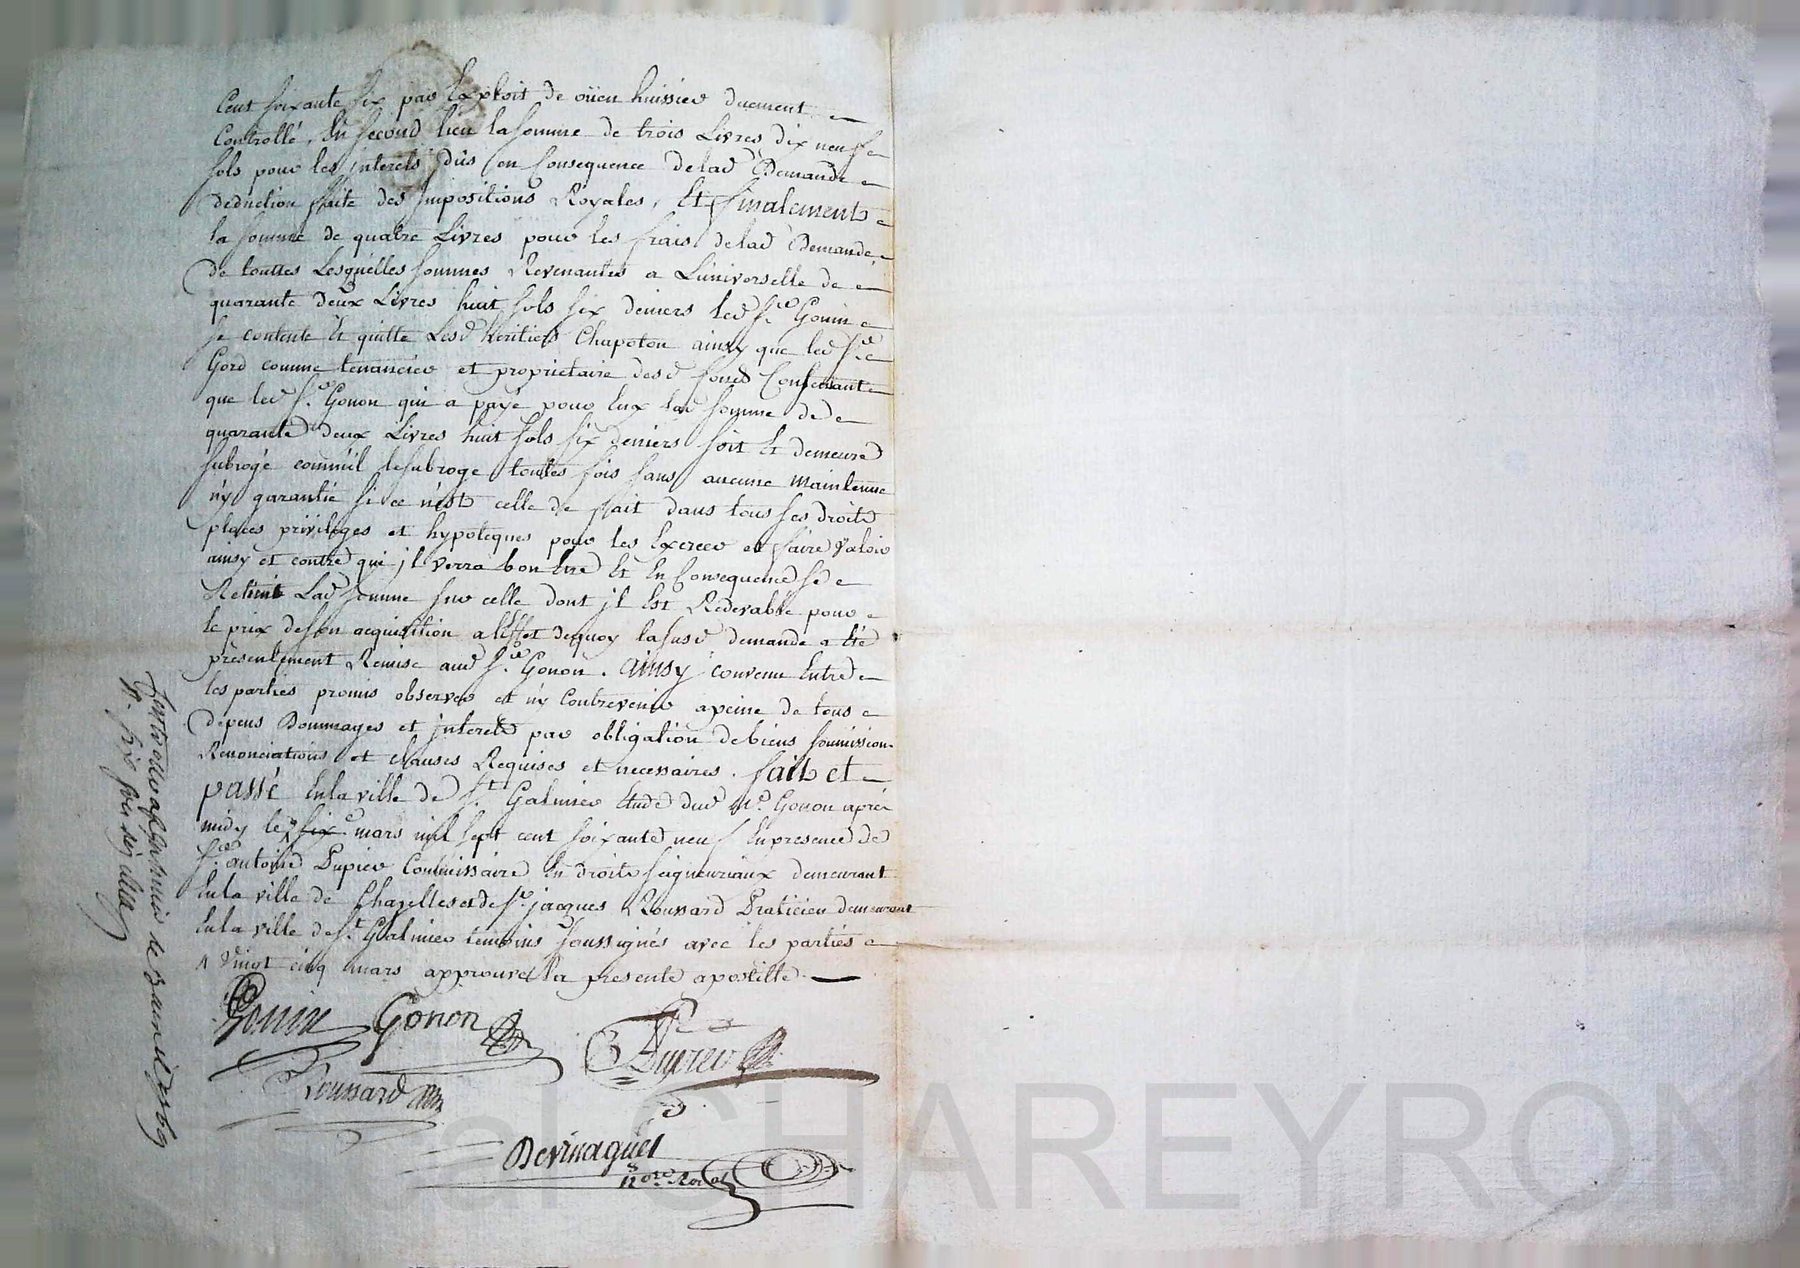 Cent soixante six par Exploit de oüen huissier duement
Controllé, En second lieu la somme de trois Livres dix neuf
sols pour les jnterets dûs en Consequence de lad Demande
deduction faite des jmpositions Royales, Et finalement
la somme de quatre Livres pour les frais de lad Demande,
De touttes Lesquelles sommes Revenantes a Luniverselle de
quarante deux Livres huit sols six deniers led Sr Gouin
se contente Et quitte Lesd heritiers Chapoton ainsy que led Sr
Gord comme tenancier et proprietaire desd fonds Consentant
que led Sr Gonon qui a payé pour Eux lad somme de
quarante deux Livres huit sols six deniers soit Et demeure
subrogé comm'il le subroge touttes fois sans aucune maintenue
n'y garantie si ce n'est celle de fait dans tous ses droits
places privileges et hypoteques pour les Exercer et faire valoir
ainsy et contre qui jl verra bon Etre Et En Consequence se
Retient Lad somme sur celle dont jl Est Redevable pour
le prix de son acquisition a l'Effet dequoy la susd demande a Eté
presentement Remise aud Sr Gonon. ainsy convenu Entre
les parties promis observer et n'y Contrevenir a peine de tous
depens Dommages et jnterets par obligation de biens soumissions
Renonciations et clauses Requises et necessaires. fait et
passé En la ville de St Galmier Etude dud Me Gonon après
midy le six mars mil sept cent soixante neuf En presence de
Sr antoine Dupier Commissaire En droits seigneuriaux demeurant
En la ville de Chazelles et de Sr jacques Roussard Praticien demeurant
En la ville de St Galmier temoins soussignés avec les parties
vingt cinq mars approuvé la presente apostille.
Gouin Gonon
Dupier
Roussard
Devinaquet
Nore Royal